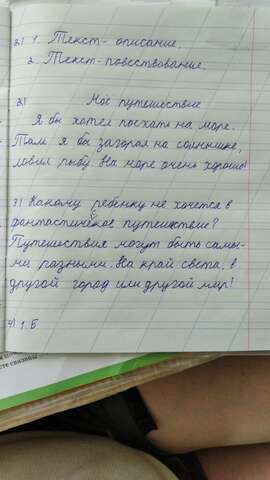 2) 1. Текст - описание.
2. Текст - повествование.
2) Мое путешествие
Я бы хотел поехать на море.
Там я бы загорал на солнышке,
ловил рыбу. На море очень хорошо!
3) Какому ребенку не хочется в
фантастическое путешествие?
Путешествия могут быть самы-
ми разными. На край света, в
другой город или другой мир!
4) 1. Б
сте связаны